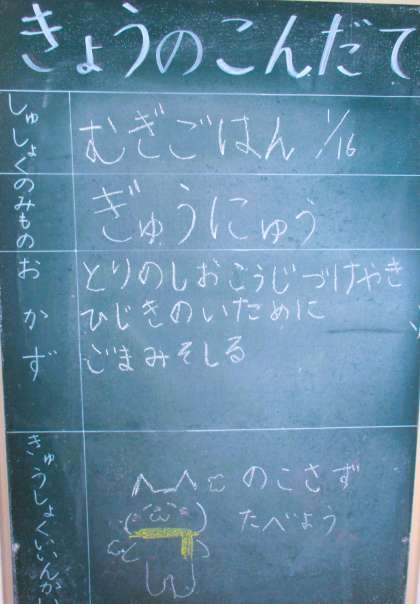 きょうのこんだて
しゅしょく
むぎごはん 1/16
のみもの
ぎゅうにゅう
おかず
とりのしおこうじづけやき
ひじきのいために
ごまみそしる
きゅうしょくいいんかい
のこさず
たべよう